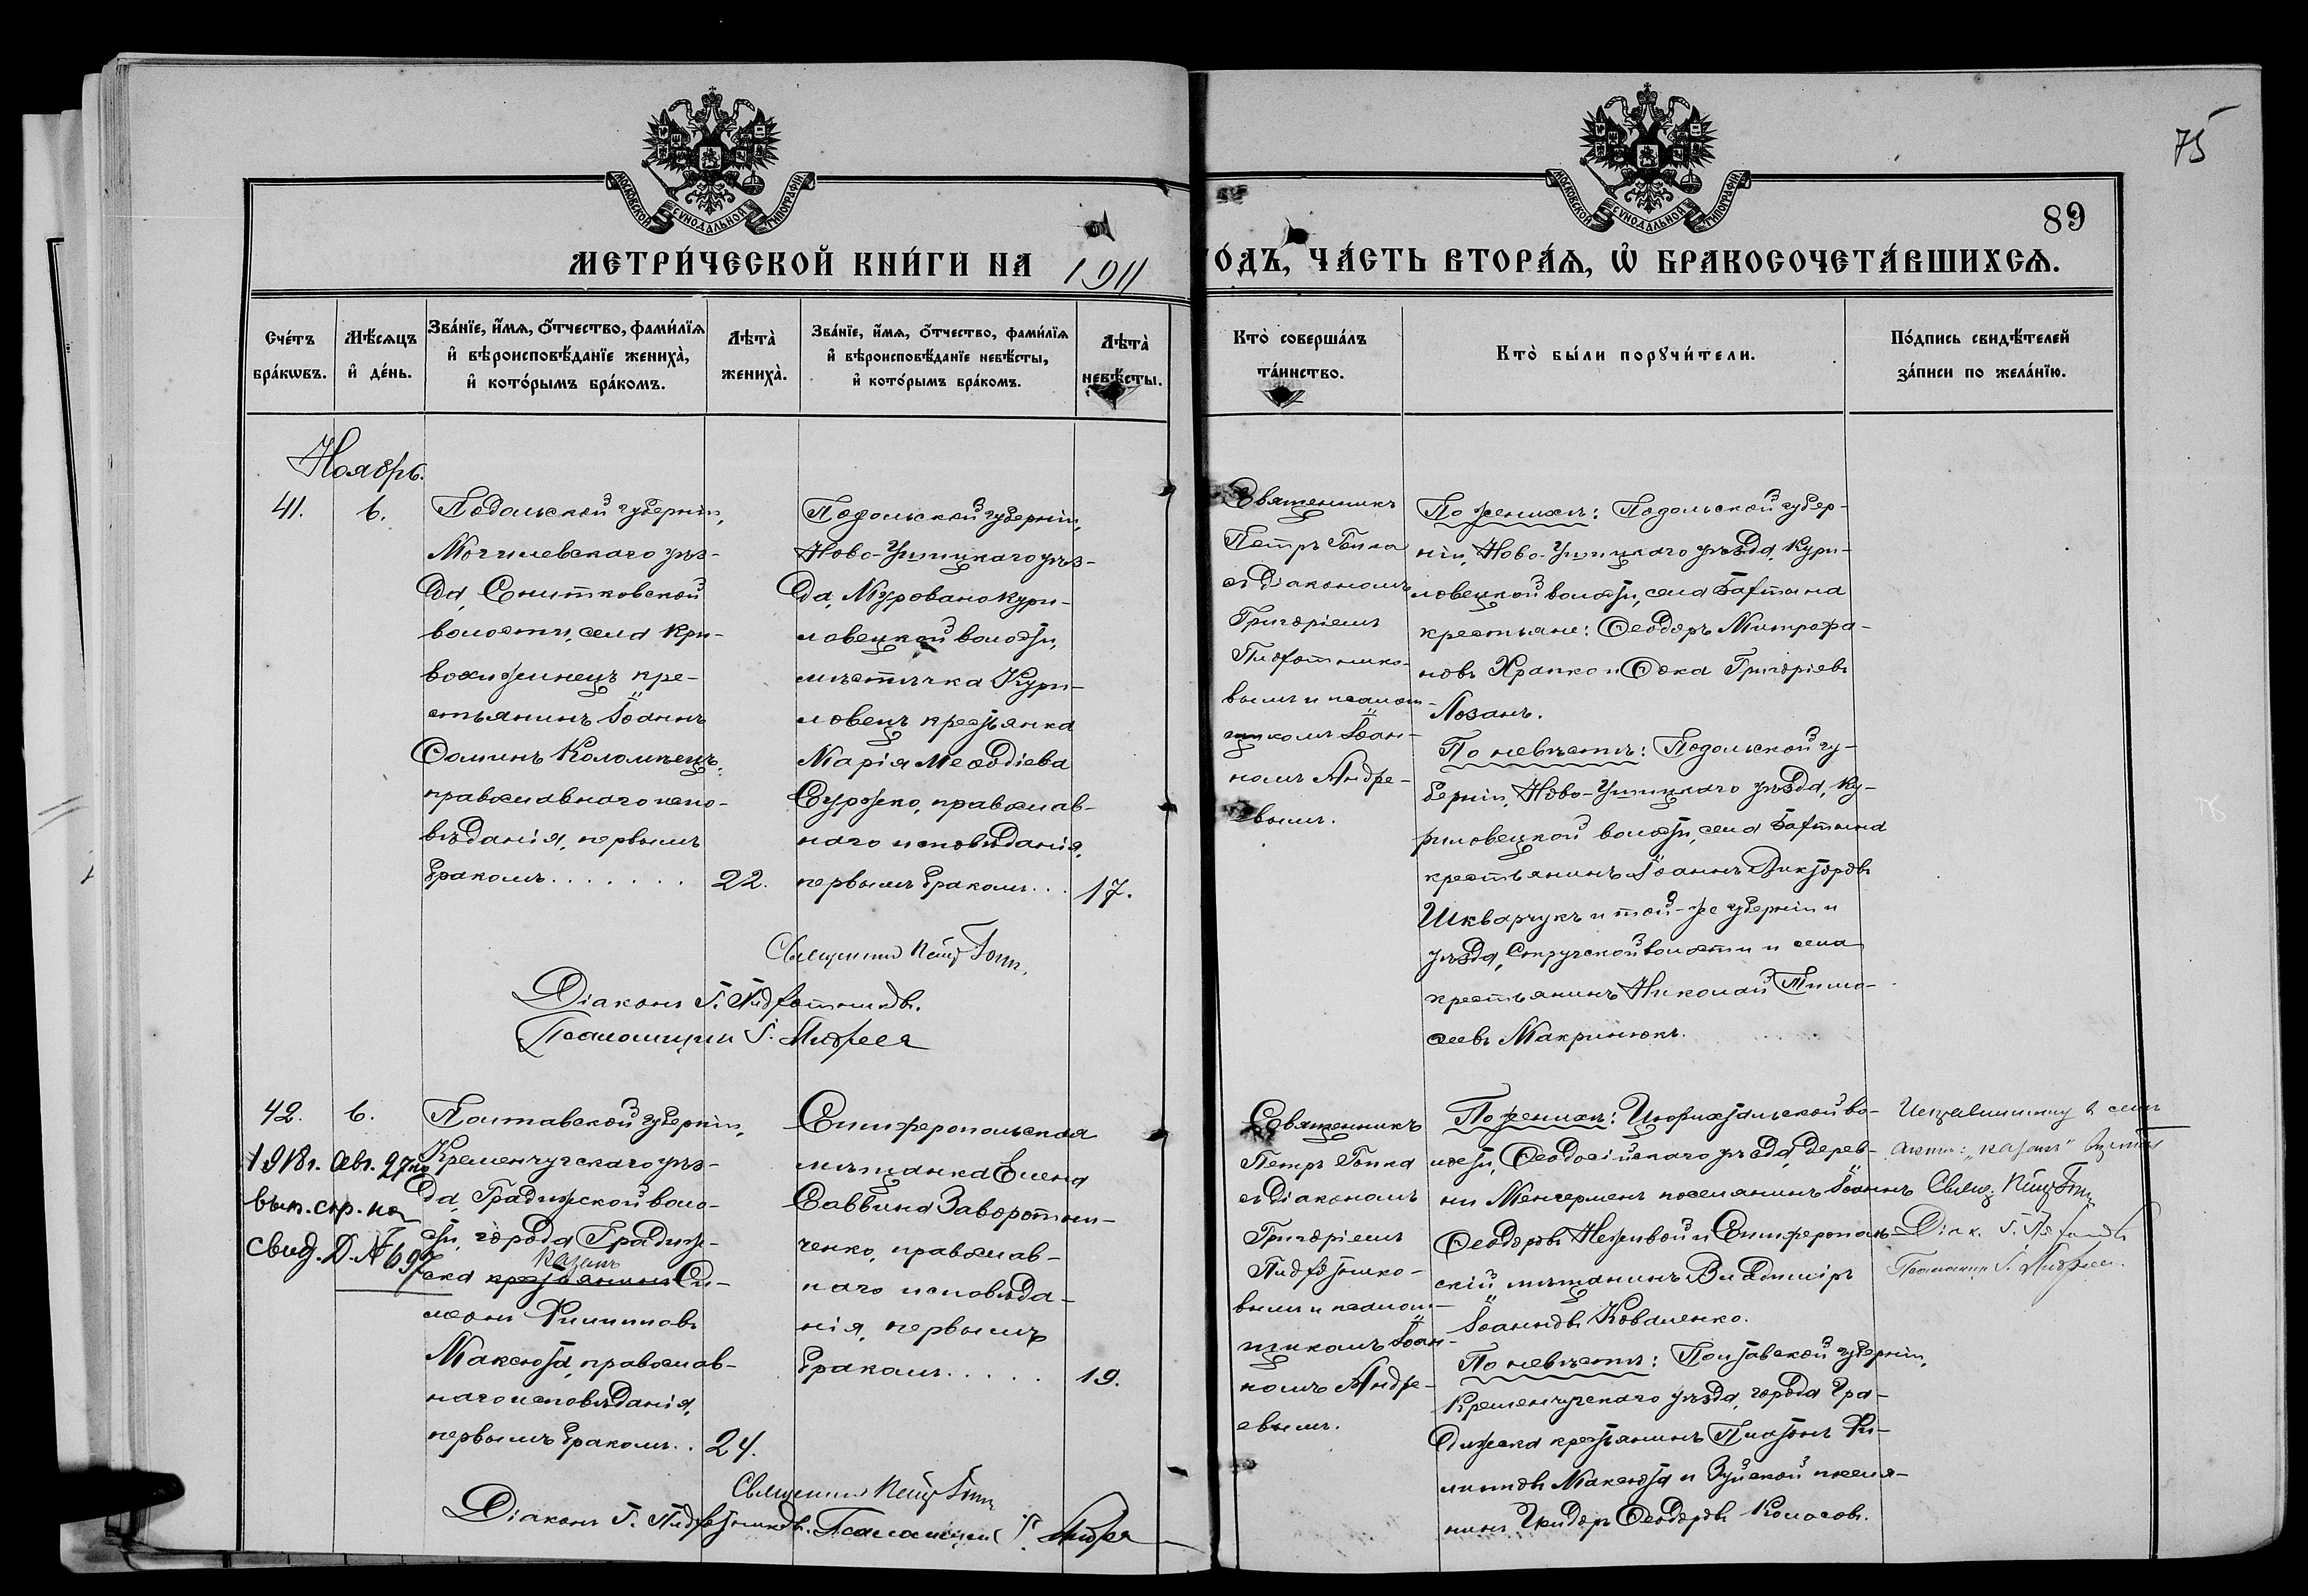 75
89
МОСКОВСКОЙ СѴНОДАЛЬНОЙ ТИПОГРАФІИ
МОСКОВСКОЙ СѴНОДАЛЬНОЙ ТИПОГРАФІИ
МЕТРИ́ЧЕСКОЙ КНИ́ГИ НА 1911 ГО́ДЪ, ЧА́СТЬ ВТОРА́Я, Ѡ҆ БРАКОСОЧЕТА́ВШИХСЯ.
Сче́тъ бра́кѡвъ.
Мѣ́сяцъ и҆ де́нь.
Зва́нїе, и҆́мя, о҆́тчество, фами́лїя и҆ вѣроисповѣ́данїе жениха̀, и҆ кото́рымъ бра́комъ.
Лѣта̀ жениха̀.
Зва́нїе, и҆́мя, о҆́тчество, фами́лїя и҆ вѣроисповѣ́данїе невѣ́сты, и҆ кото́рымъ бра́комъ.
Лѣта̀ невѣ́сты.
Кто̀ соверша́лъ та́инство.
Кто̀ бы́ли порꙋчи́тели.
По́дпись свидѣ́телей за́писи по жела́нїю.
Ноябрь.
41.
6.
Подольской губерніи,
Могилевскаго уѣз-
да, Снитковской
волости, села Кри-
вохижинецъ кре-
стьянинъ Іоаннъ
Ѳоминъ Коломѣецъ,
православнаго испо-
вѣданія, первымъ
бракомъ.......
22.
Подольской губерніи,
Ново-Ушицкаго уѣз-
да, Муровано Кури-
ловецкой волости,
мѣстечка Кури-
ловецъ крестьянка
Марія Меѳодіева
Сурожко, православ-
наго исповѣданія,
первымъ бракомъ...
17.
Священникъ
Петръ Гопка
съ Діакономъ
Григоріемъ
вымъ и псалом-
щикомъ Іоан-
номъ Андре-
евымъ.
По женихѣ: Подольской губер-
ніи, Ново-Ушицкаго уѣзда, Кури-
ловецкой волости, села Бахтына
крестьяне: Ѳеодоръ Митрофа-
новъ Храпко и Ѳока Григоріевъ
Лозанъ.
По невѣстѣ: Подольской гу-
берніи, Ново-Ушицкаго уѣзда, Ку-
риловецкой волости, села Бахтына
крестьянинъ Іоаннъ Викторовъ
Шкварчукъ и той-же губерніи и
уѣзда, волости и села
крестьянинъ Николай Тимо-
ѳеевъ Макринюкъ.
Священникъ Петръ
Діаконъ Г.
Псаломщикъ І. Андреевъ
42.
6.
1918г. Авг. 27го
вып. стр. на
свид. Д. № 69
Полтавской губерніи,
Кременчугскаго уѣз-
да, Градижской воло-
сти, города Градиж-
казакъ
ска крестьянинъ Си-
меонъ Филипповъ
Максюта, православ-
наго исповѣданія,
первымъ бракомъ..
24.
Симферопольская
мѣщанка Елена
Саввина Заворотни-
ченко, православ-
наго исповѣда-
нія, первымъ
бракомъ.....
19.
Священникъ
Петръ Гопка
съ Діакономъ
Григоріемъ
вымъ и псалом-
щикомъ Іоан-
номъ Андре-
евымъ.
По женихѣ: Цюрихтальской во-
лости, Ѳеодосійскаго уѣзда, дерев-
ни Менгерменъ поселянинъ Іоаннъ
Ѳеодоровъ Неживой и Симферополь-
скій мѣщанинъ Владиміръ
Іоанновъ Коваленко.
По невѣстѣ: Полтавской губерніи,
Кременчугскаго уѣзда, города Гра-
дижска крестьянинъ Платонъ Фи-
липповъ Максюта и Зуйской поселя-
нинъ Исидоръ Ѳеодоровъ Колосовъ.
"казакъ"
Свящ. Петръ
Діак. Г.
Псаломщ. І. Андреевъ.
Священникъ Петръ
Діаконъ Г.
Псаломщикъ І. Андреевъ